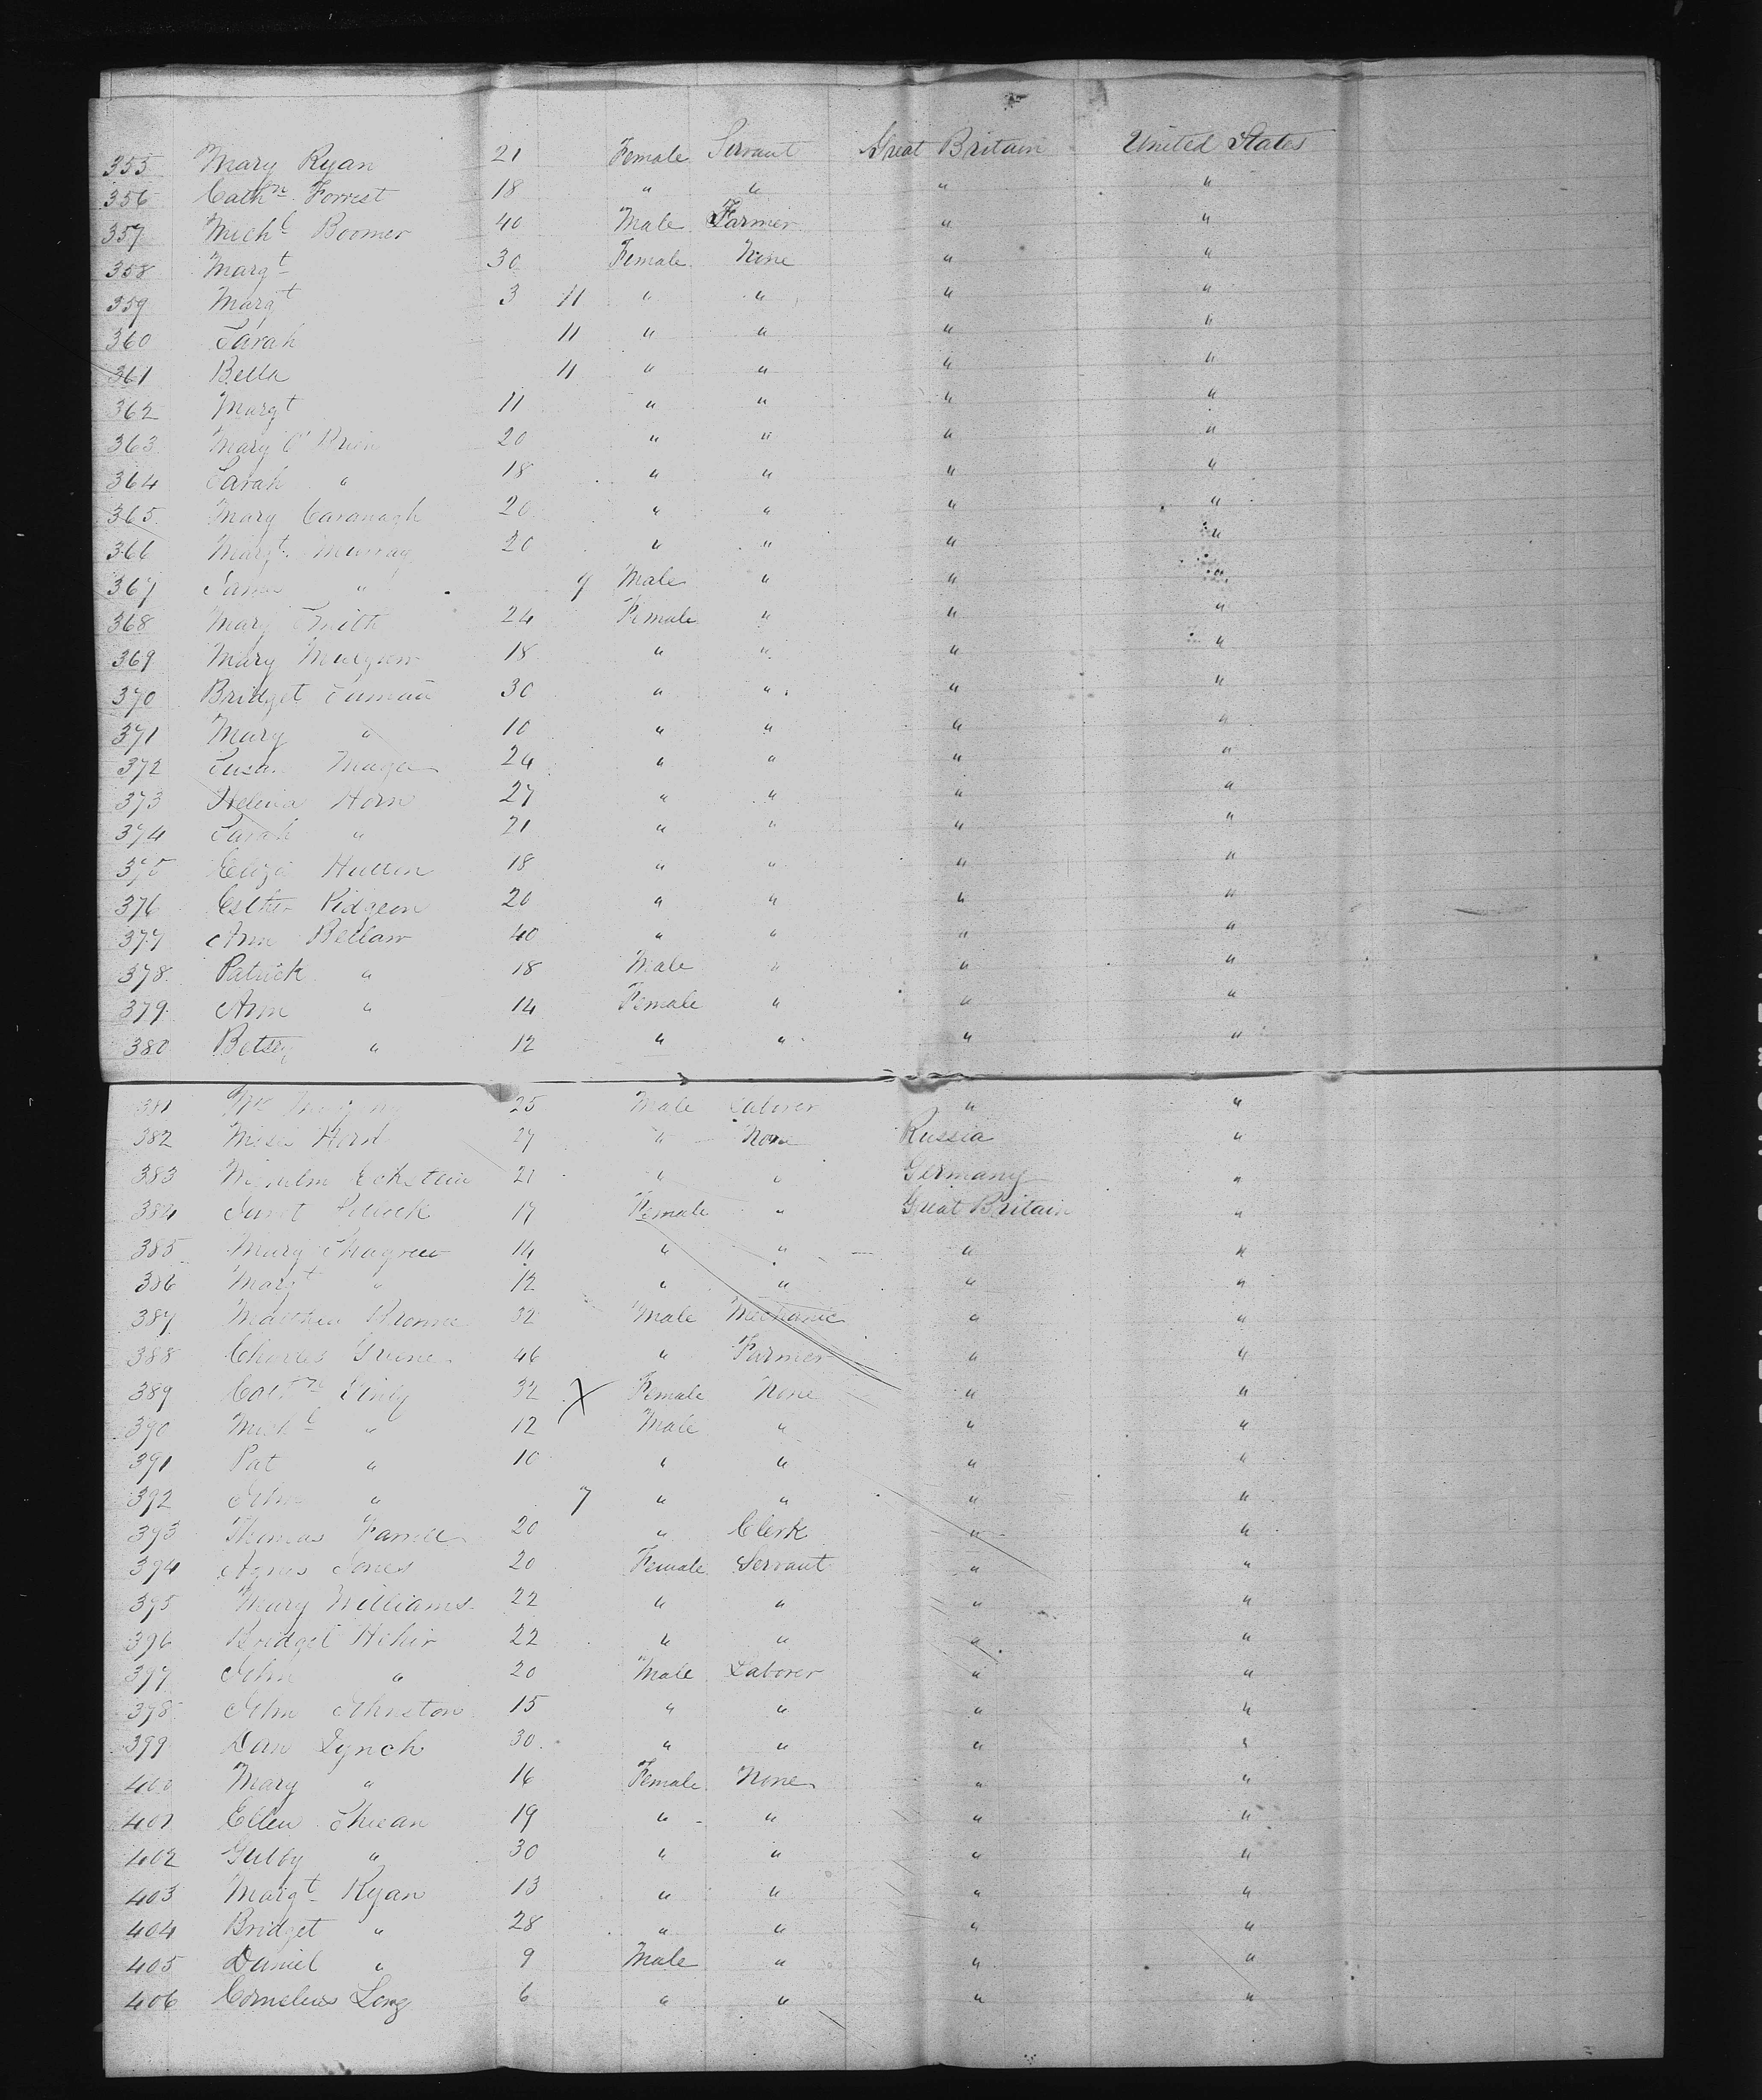 355 Mary Ryan 21 Female Servant Great Britain United States
356 Cathne Forrest 18 " " " "
357 Michl Boomer 40 Male Farmer " "
358 Margt 30 Female None " "
359 Margt 3 11 " " " "
360 Sarah 11 " " " "
361 Bella 11 " " " "
362 Margt 11 " " " "
363 Mary O'Brien 20 " " " "
364 Sarah " 18 " " " "
365 Mary Cavanagh 20 " " " "
366 Margt Murray 20 " " " "
367 James " 9 Male " " "
368 Mary Smith 24 Female " " "
369 Mary 18 " " " "
370 Bridget 30 " " " "
371 Mary " 10 " " " "
372 Susan 24 " " " "
373 Helena Horn 27 " " " "
374 Sarah " 21 " " " "
375 Eliza Hullen 18 " " " "
376 Esther Pidgeon 20 " " " "
377 Ann Bellaw 40 " " " "
378 Patrick " 18 Male " " "
379 Ann " 14 Female " " "
380 Betsey " 12 " " " "
381 25 Male Laborer " "
382 27 " None Russia "
383 Wilhelm Eckstein 21 " " Germany "
384 Pollock 17 Female " Great Britain "
385 Mary 14 " " " "
386 Margt " 12 " " " "
387 Matthew 32 Male Mechanic " "
388 Charles Greene 46 " Farmer " "
389 Cathne 32 X Female None " "
390 Michl " 12 Male " " "
391 Pat " 10 " " " "
392 John " 7 " " " "
393 Thomas Farrell 20 " Clerk " "
394 Agnes Jones 20 Female Servant " "
395 Mary Williams 22 " " " "
396 Bridget Hehir 22 " " " "
397 John " 20 Male Laborer " "
398 John Johnston 15 " " " "
399 Dan Lynch 30 " " " "
400 Mary " 16 Female None " "
401 Ellen 19 " " " "
402 " 30 " " " "
403 Margt Ryan 13 " " " "
404 Bridget " 28 " " " "
405 Daniel " 9 Male " " "
406 Cornelius Long 6 " " " "